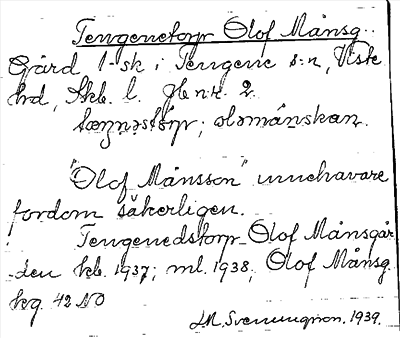 Tengenetorp Olof Månsg.
Gård 1 sk i Tengene s:n, Viste
hd, Skb. l. Jb nr. 2.
tæŋnəstɔrp; oləmånskan.
"Olof Månsson" innehavare
fordom säkerligen.
Tengenedstorp Olof Månsgår
den kb. 1937; ml. 1938, Olof Månsg.
kg. 42 NO
Svenungson. 1939.